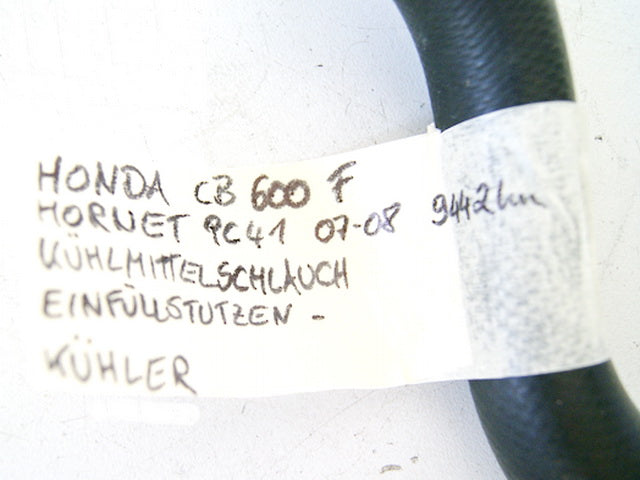 HONDA CB 600 F
HORNET PC41 07-08 9442 km
KÜHLMITTELSCHLAUCH
EINFÜLLSTUTZEN -
KÜHLER